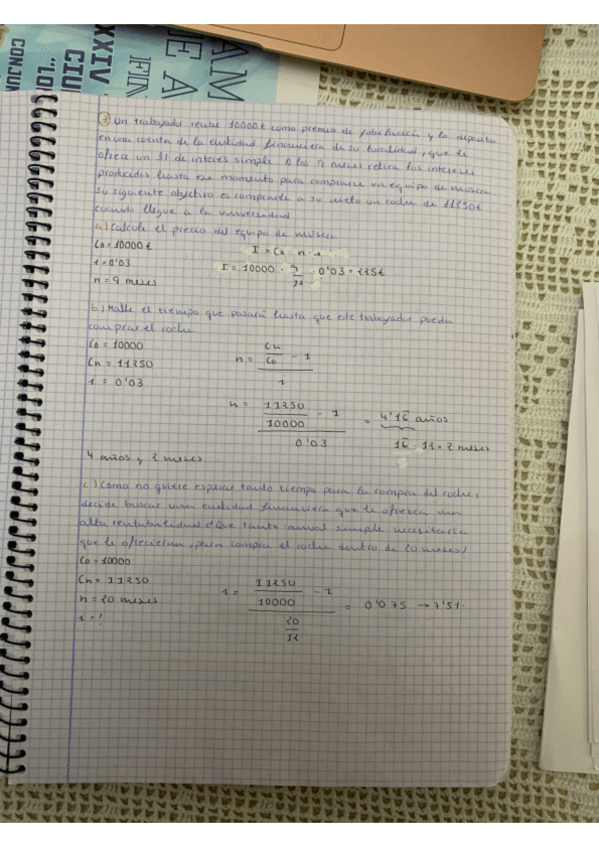 XXXIV
CIU
"LO
CONJUN
AM
E A
FIN
③ Un trabajador recibe 10000€ como premio de jubilación y la deposita
en una cuenta de la entidad financiera de su localidad, que le
ofrece un 3% de interés simple. A los 9 meses retira los intereses
producidos hasta ese momento para comprarse un equipo de música
su siguiente objetivo es comprarle a su nieto un coche de 11250€
cuando llegue a la universidad
a) Calcule el precio del equipo de música
C0 = 10000 €
I = C0 · n · i
i = 0'03
I = 10000 · 9/12 · 0'03 = 225€
n = 9 meses
b) Halle el tiempo que pasará hasta que este trabajador pueda
comprar el coche
C0 = 10000
Cn = 11250
i = 0'03
n = (Cn/C0 - 1)/i
n = (11250/10000 - 1)/0'03 = 4'16 años
16 · 12 = 2 meses
4 años y 2 meses
c) Como no quiere esperar tanto tiempo para la compra del coche,
decide buscar una entidad financiera que le ofrezca una
alta rentabilidad ¿Que tanto anual simple necesitaría
que le ofrecieran, para compra el coche dentro de 20 meses?
C0 = 10000
Cn = 11250
n = 20 meses
i = ?
i = (11250/10000 - 1)/(20/12) = 0'075 → 7'5%